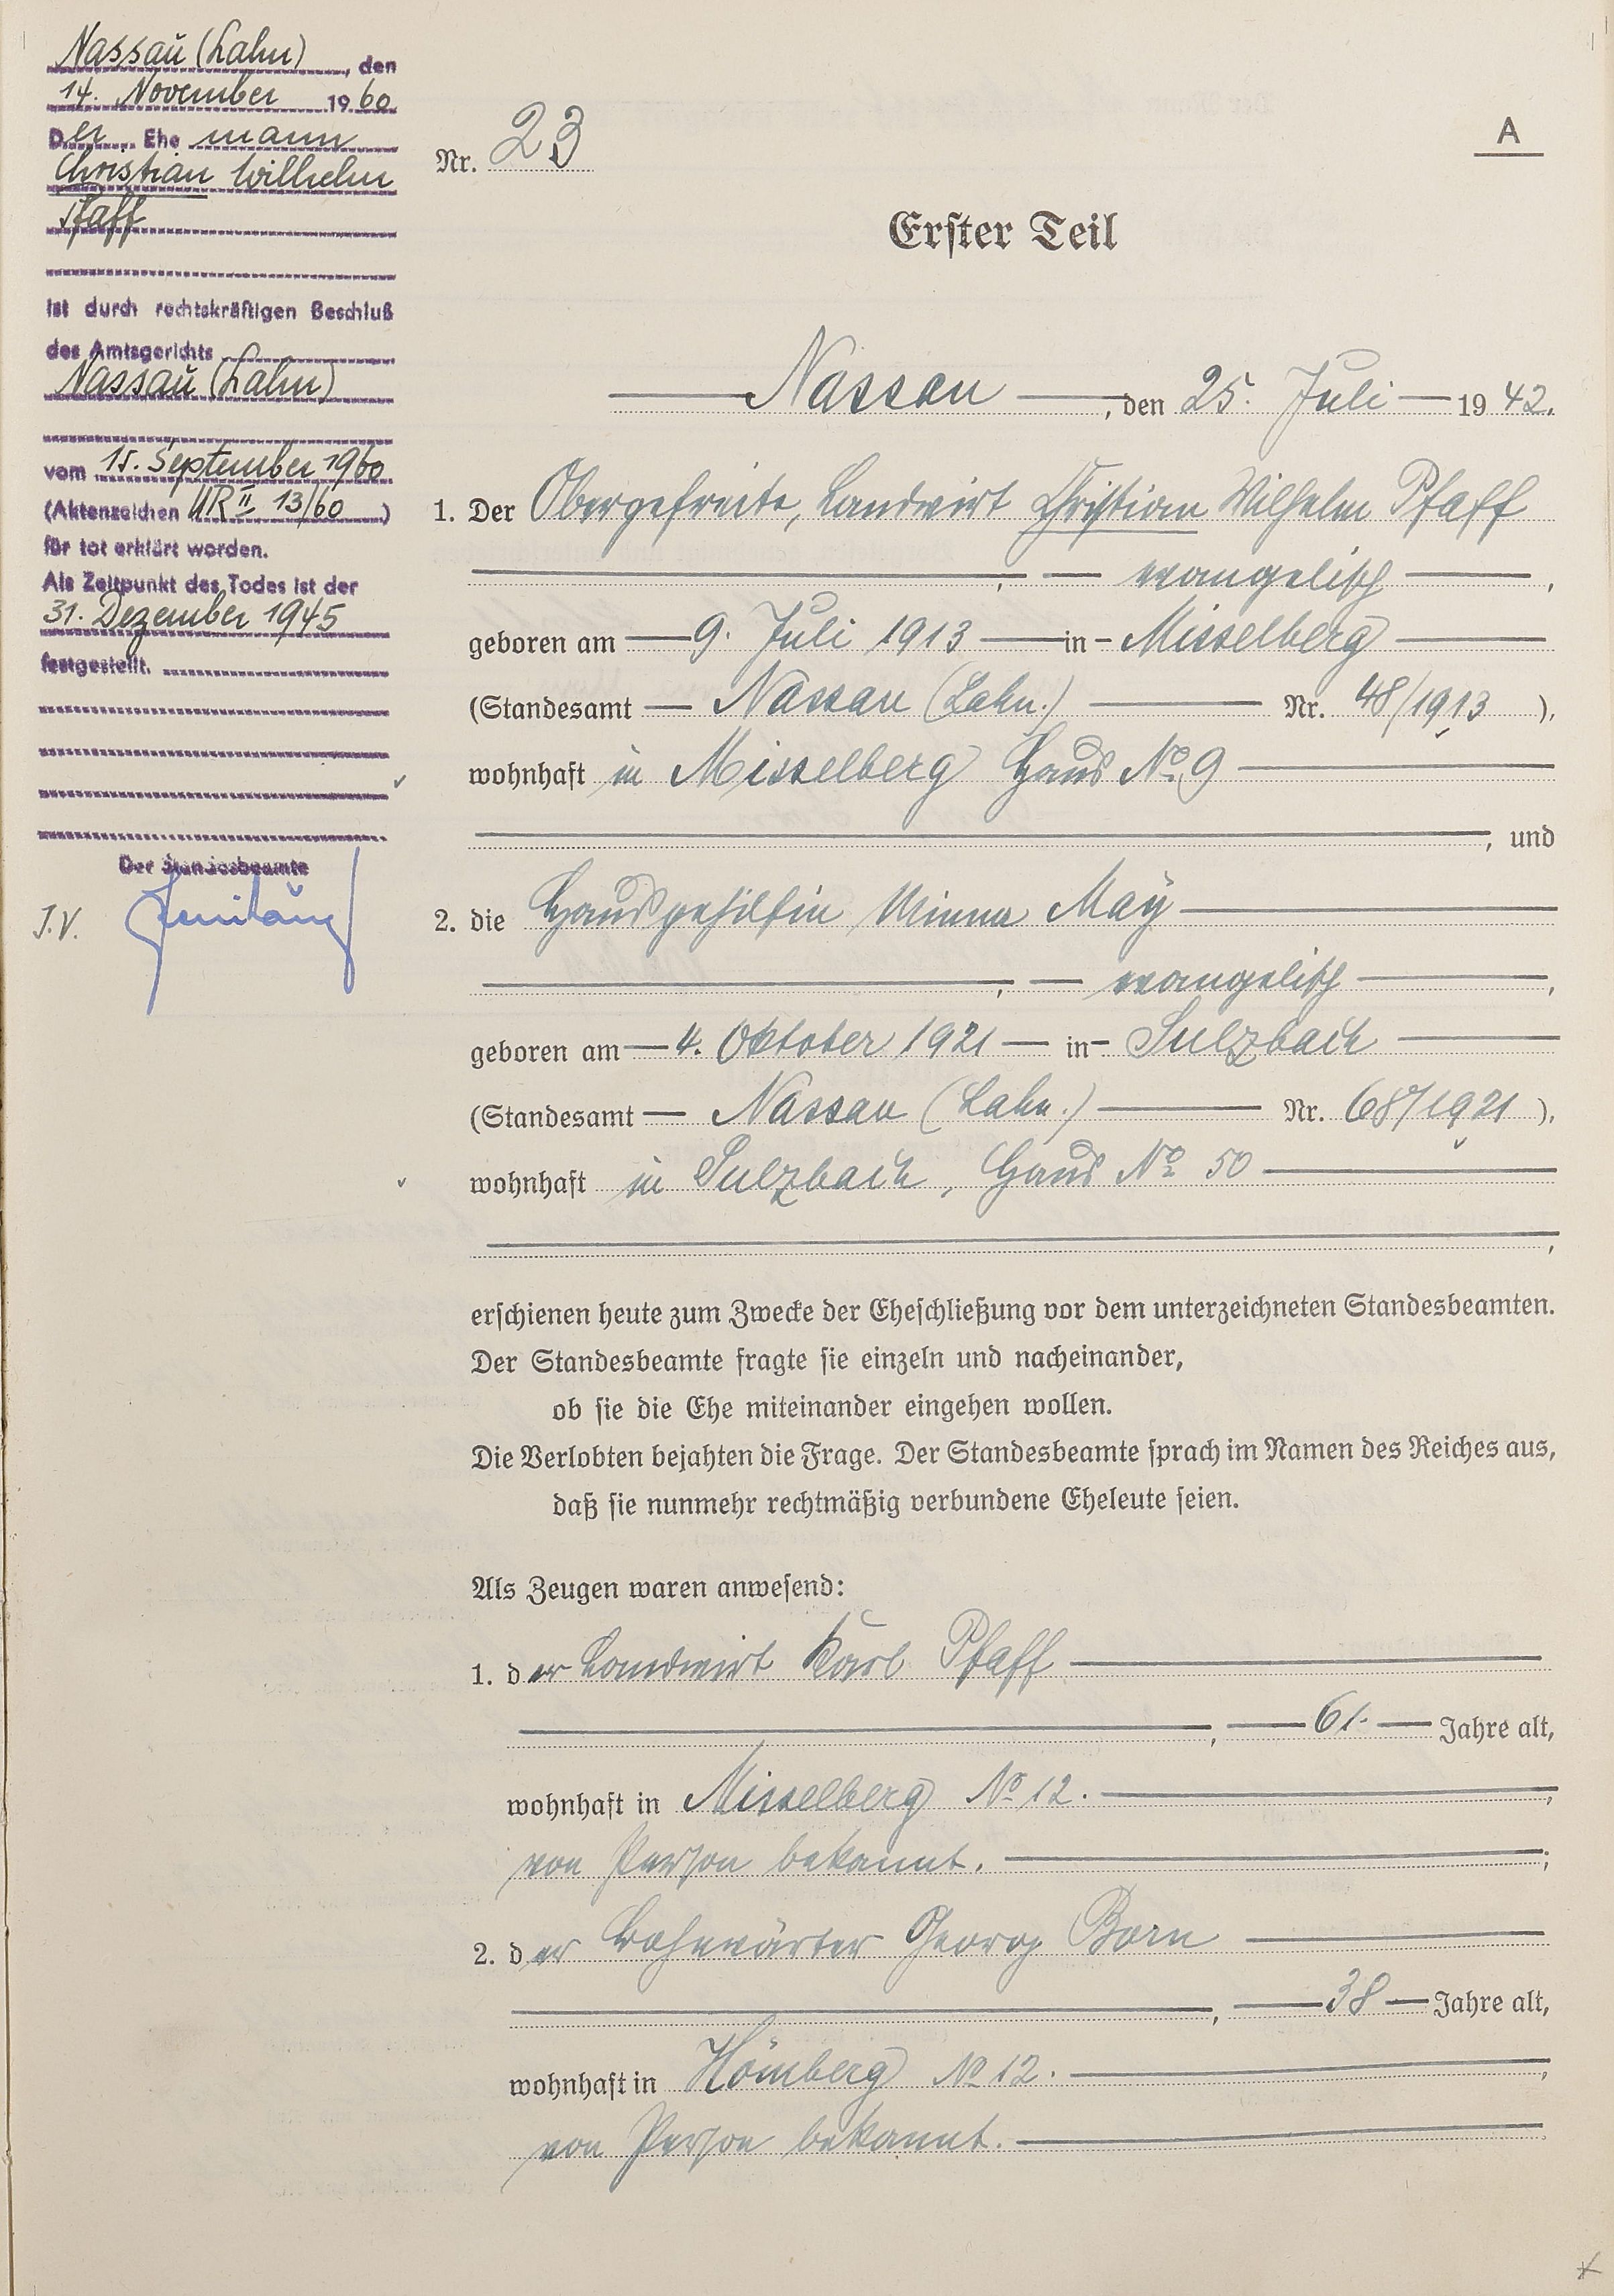 Nassau (Lahn), den
14. November 1960
Der Ehemann
Christian Wilhelm
Pfaff
ist durch rechtskräftigen Beschluß
des Amtsgerichts
Nassau (Lahn)
vom 15. September 1960
(Aktenzeichen UR II 13/60)
für tot erklärt worden.
Als Zeitpunkt des Todes ist der
31. Dezember 1945
festgestellt.
Der Standesbeamte
J.V.
A
Nr. 23
Erster Teil
Nassau, den 25. Juli 1942.
1. Der Obergefreite, Landwirt Christian Wilhelm Pfaff
, evangelisch,
geboren am 9. Juli 1913 in Misselberg
(Standesamt Nassau (Lahn.) Nr. 48/1913),
wohnhaft in Misselberg Haus No. 9
, und
2. die Hausgehilfin Minna May
, evangelisch,
geboren am 4. Oktober 1921 in Sulzbach
(Standesamt Nassau (Lahn.) Nr. 68/1921),
wohnhaft in Sulzbach, Haus No 50
,
erschienen heute zum Zwecke der Eheschließung vor dem unterzeichneten Standesbeamten.
Der Standesbeamte fragte sie einzeln und nacheinander,
ob sie die Ehe miteinander eingehen wollen.
Die Verlobten bejahten die Frage. Der Standesbeamte sprach im Namen des Reiches aus,
daß sie nunmehr rechtmäßig verbundene Eheleute seien.
Als Zeugen waren anwesend:
1. der Landwirt Karl Pfaff
, 61. Jahre alt,
wohnhaft in Misselberg No 12.
von Person bekannt.
2. der Bahnwärter Georg Born
, 38 Jahre alt,
wohnhaft in Hömberg No 12.
von Person bekannt.